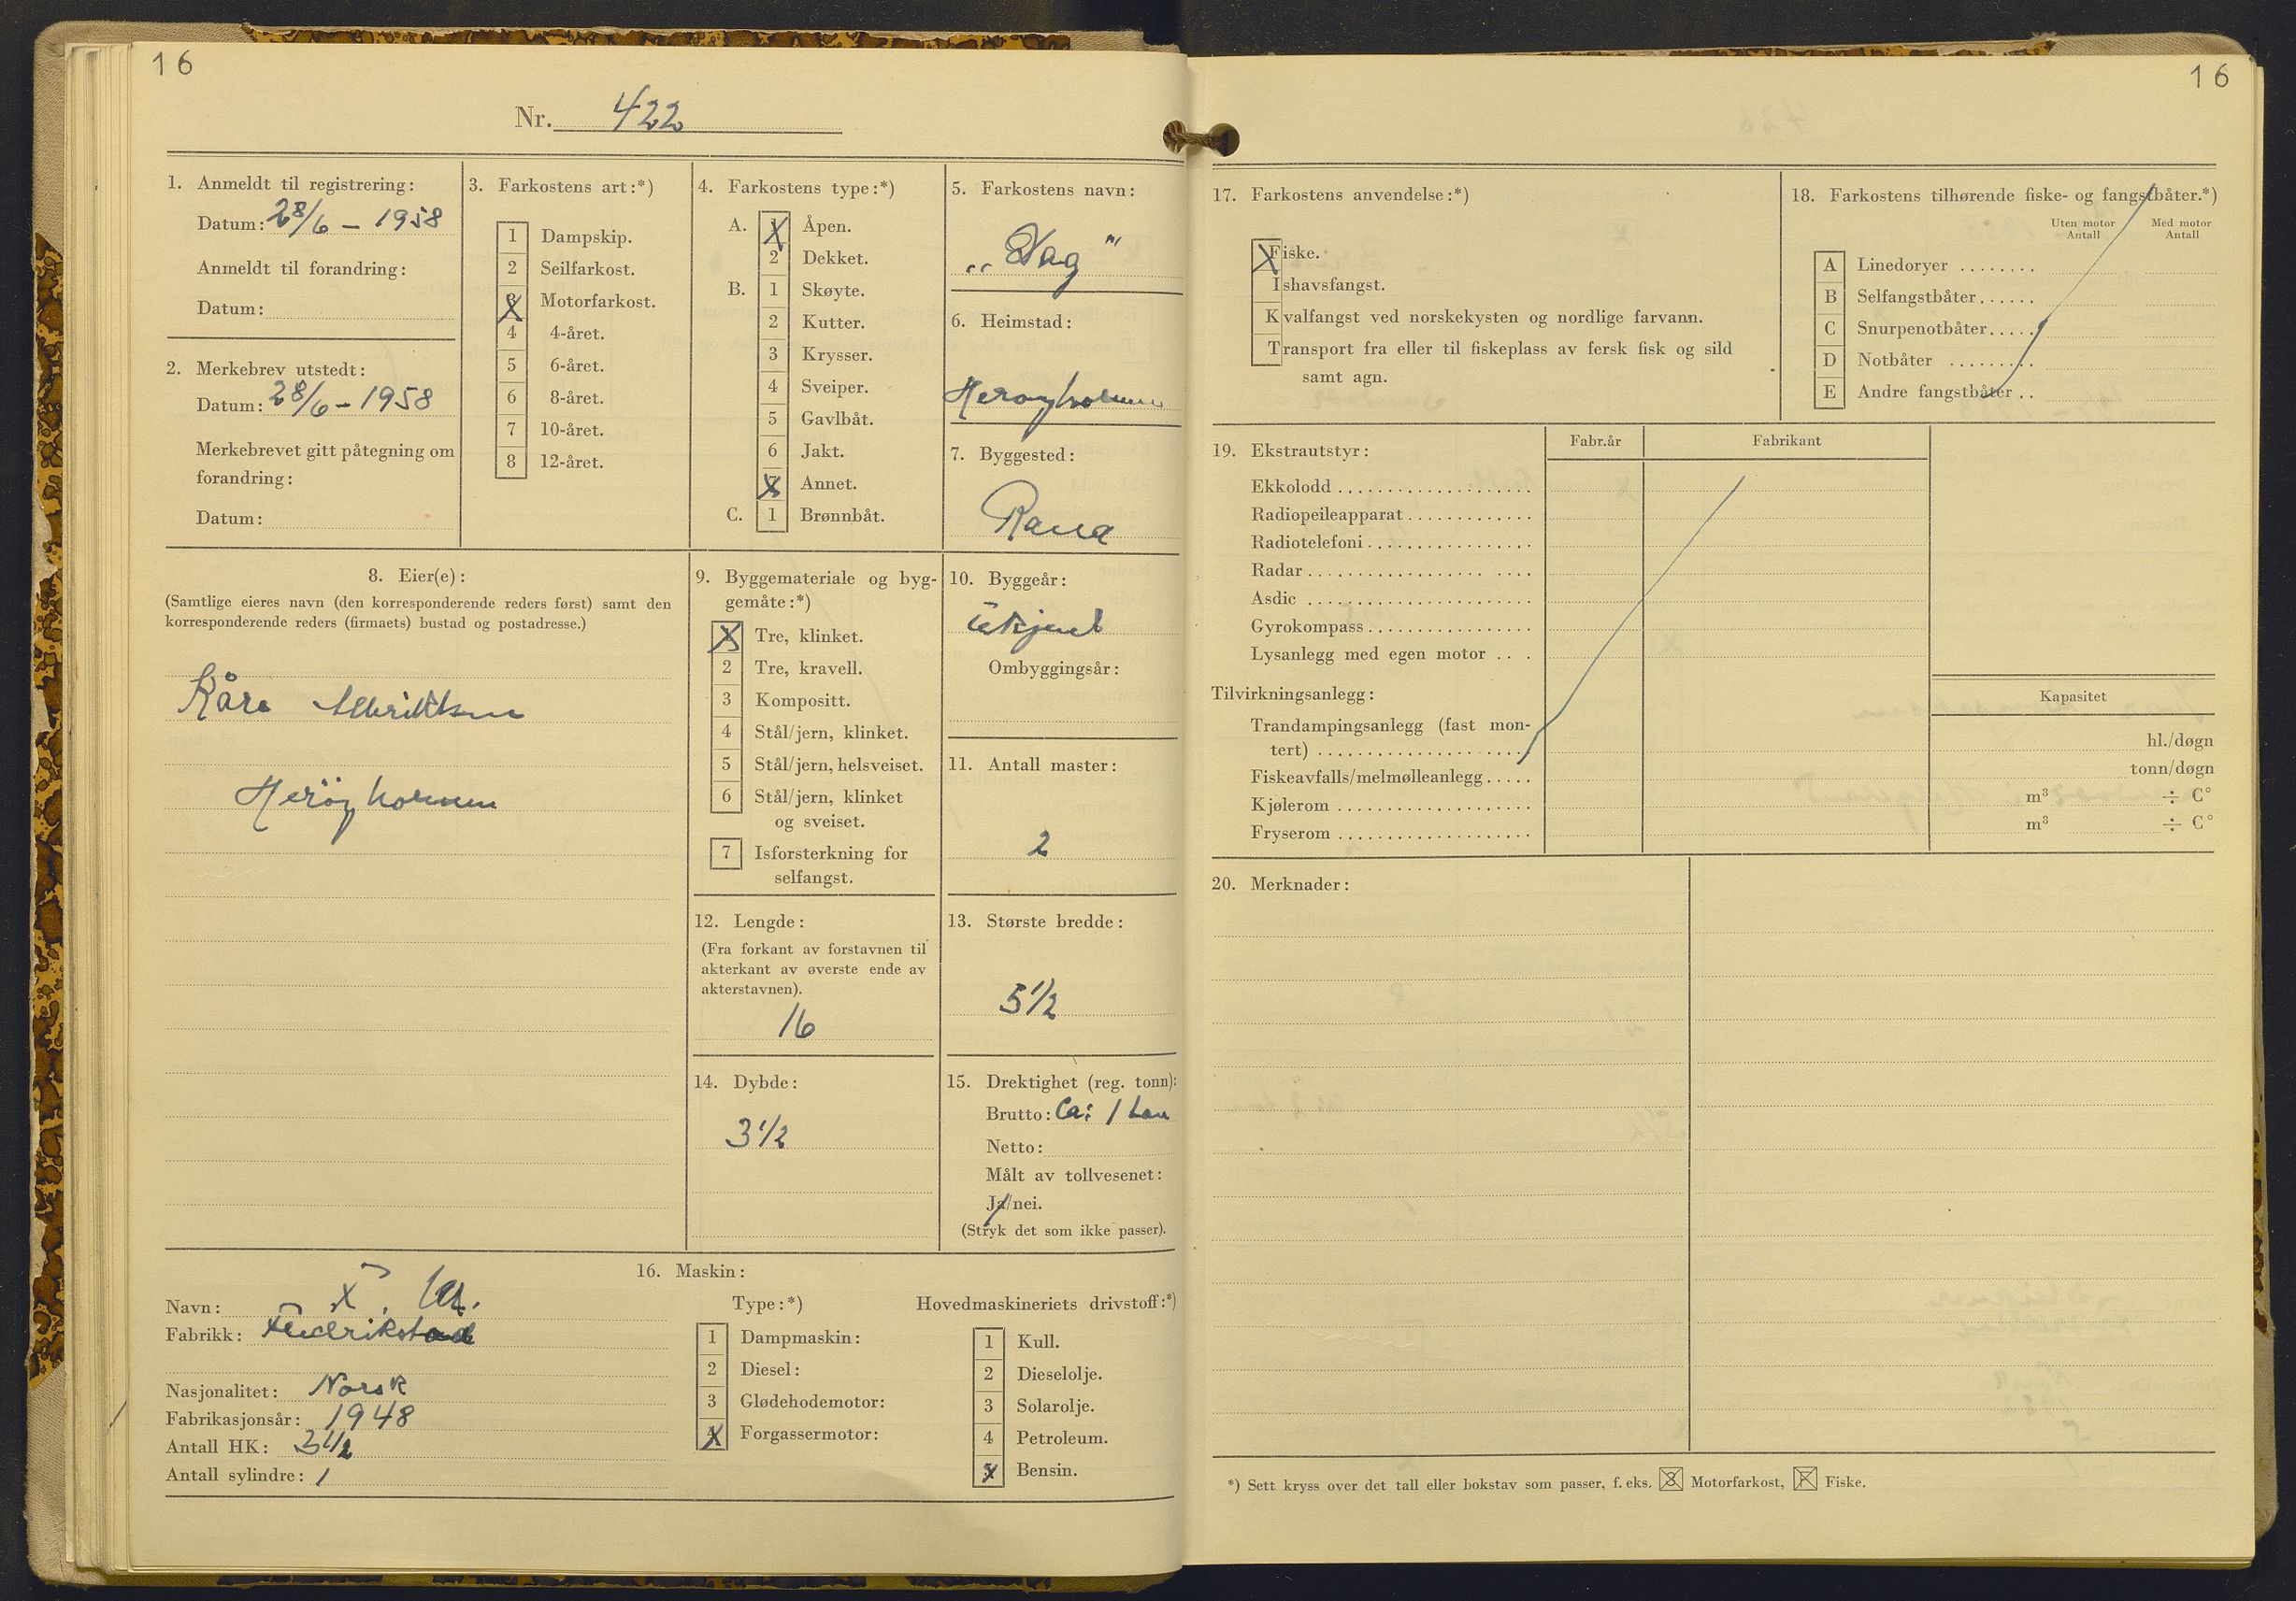 16
Nr. 422
1. Anmeldt til registrering:
Datum: 28/6 - 1958
Anmeldt til forandring:
Datum:
2. Merkebrev utstedt:
Datum: 28/6 - 1958
Merkebrevet gitt påtegning om
forandring:
Datum:
3. Farkostens art:*)
1 Dampskip.
2 Seilfarkost.
X Motorfarkost.
4 4-året.
5 6-året.
6 8-året.
7 10-året.
8 12-året.
4. Farkostens type:*)
A. X Åpen.
2 Dekket.
B. 1 Skøyte.
2 Kutter.
3 Krysser.
4 Sveiper.
5 Gavlbåt.
6 Jakt.
X Annet.
C. 1 Brønnbåt.
5. Farkostens navn:
„Dag"
6. Heimstad:
Herøyholmen
7. Byggested:
Rana
8. Eier(e):
(Samtlige eieres navn (den korresponderende reders først) samt den
korresponderende reders (firmaets) bustad og postadresse.)
Kåre Albriktsen
Herøyholmen
9. Byggemateriale og byg-
gemåte:*)
X Tre, klinket.
2 Tre, kravell.
3 Kompositt.
4 Stål/jern, klinket.
5 Stål/jern, helsveiset.
6 Stål/jern, klinket
og sveiset.
7 Isforsterkning for
selfangst.
10. Byggeår:
ukjent
Ombyggingsår:
11. Antall master:
2
12. Lengde:
(Fra forkant av forstavnen til
akterkant av øverste ende av
akterstavnen).
16
13. Største bredde:
5 1/2
14. Dybde:
3 1/2
15. Drektighet (reg. tonn):
Brutto: Ca: 1 ton
Netto:
Målt av tollvesenet:
Ja/nei.
(Stryk det som ikke passer).
16. Maskin:
Navn: F. M.
Fabrikk: Fredrikstad
Nasjonalitet: Norsk
Fabrikasjonsår: 1948
Antall HK: 3 1/2
Antall sylindre: 1
Type:*)
1 Dampmaskin:
2 Diesel:
3 Glødehodemotor:
X Forgassermotor:
Hovedmaskineriets drivstoff:*)
1 Kull.
2 Dieselolje.
3 Solarolje.
4 Petroleum.
X Bensin.
16
17. Farkostens anvendelse:*)
Fiske.
Ishavsfangst.
Kvalfangst ved norskekysten og nordlige farvann.
Transport fra eller til fiskeplass av fersk fisk og sild
samt agn.
18. Farkostens tilhørende fiske- og fangstbåter.*)
Uten motor Antall Med motor Antall
A Linedoryer
B Selfangstbåter
C Snurpenotbåter
D Notbåter
E Andre fangstbåter
19. Ekstrautstyr:
Fabr.år Fabrikant
Ekkolodd
Radiopeileapparat
Radiotelefoni
Radar
Asdic
Gyrokompass
Lysanlegg med egen motor
Tilvirkningsanlegg:
Kapasitet
Trandampingsanlegg (fast mon-
tert) hl./døgn
Fiskeavfalls/melmølleanlegg tonn/døgn
Kjølerom m³ ÷ C°
Fryserom m³ ÷ C°
20. Merknader:
*) Sett kryss over det tall eller bokstav som passer, f. eks. 3 Motorfarkost, F Fiske.